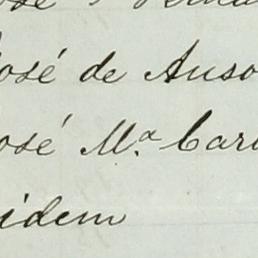 José de Auso
José Mª Car
idem